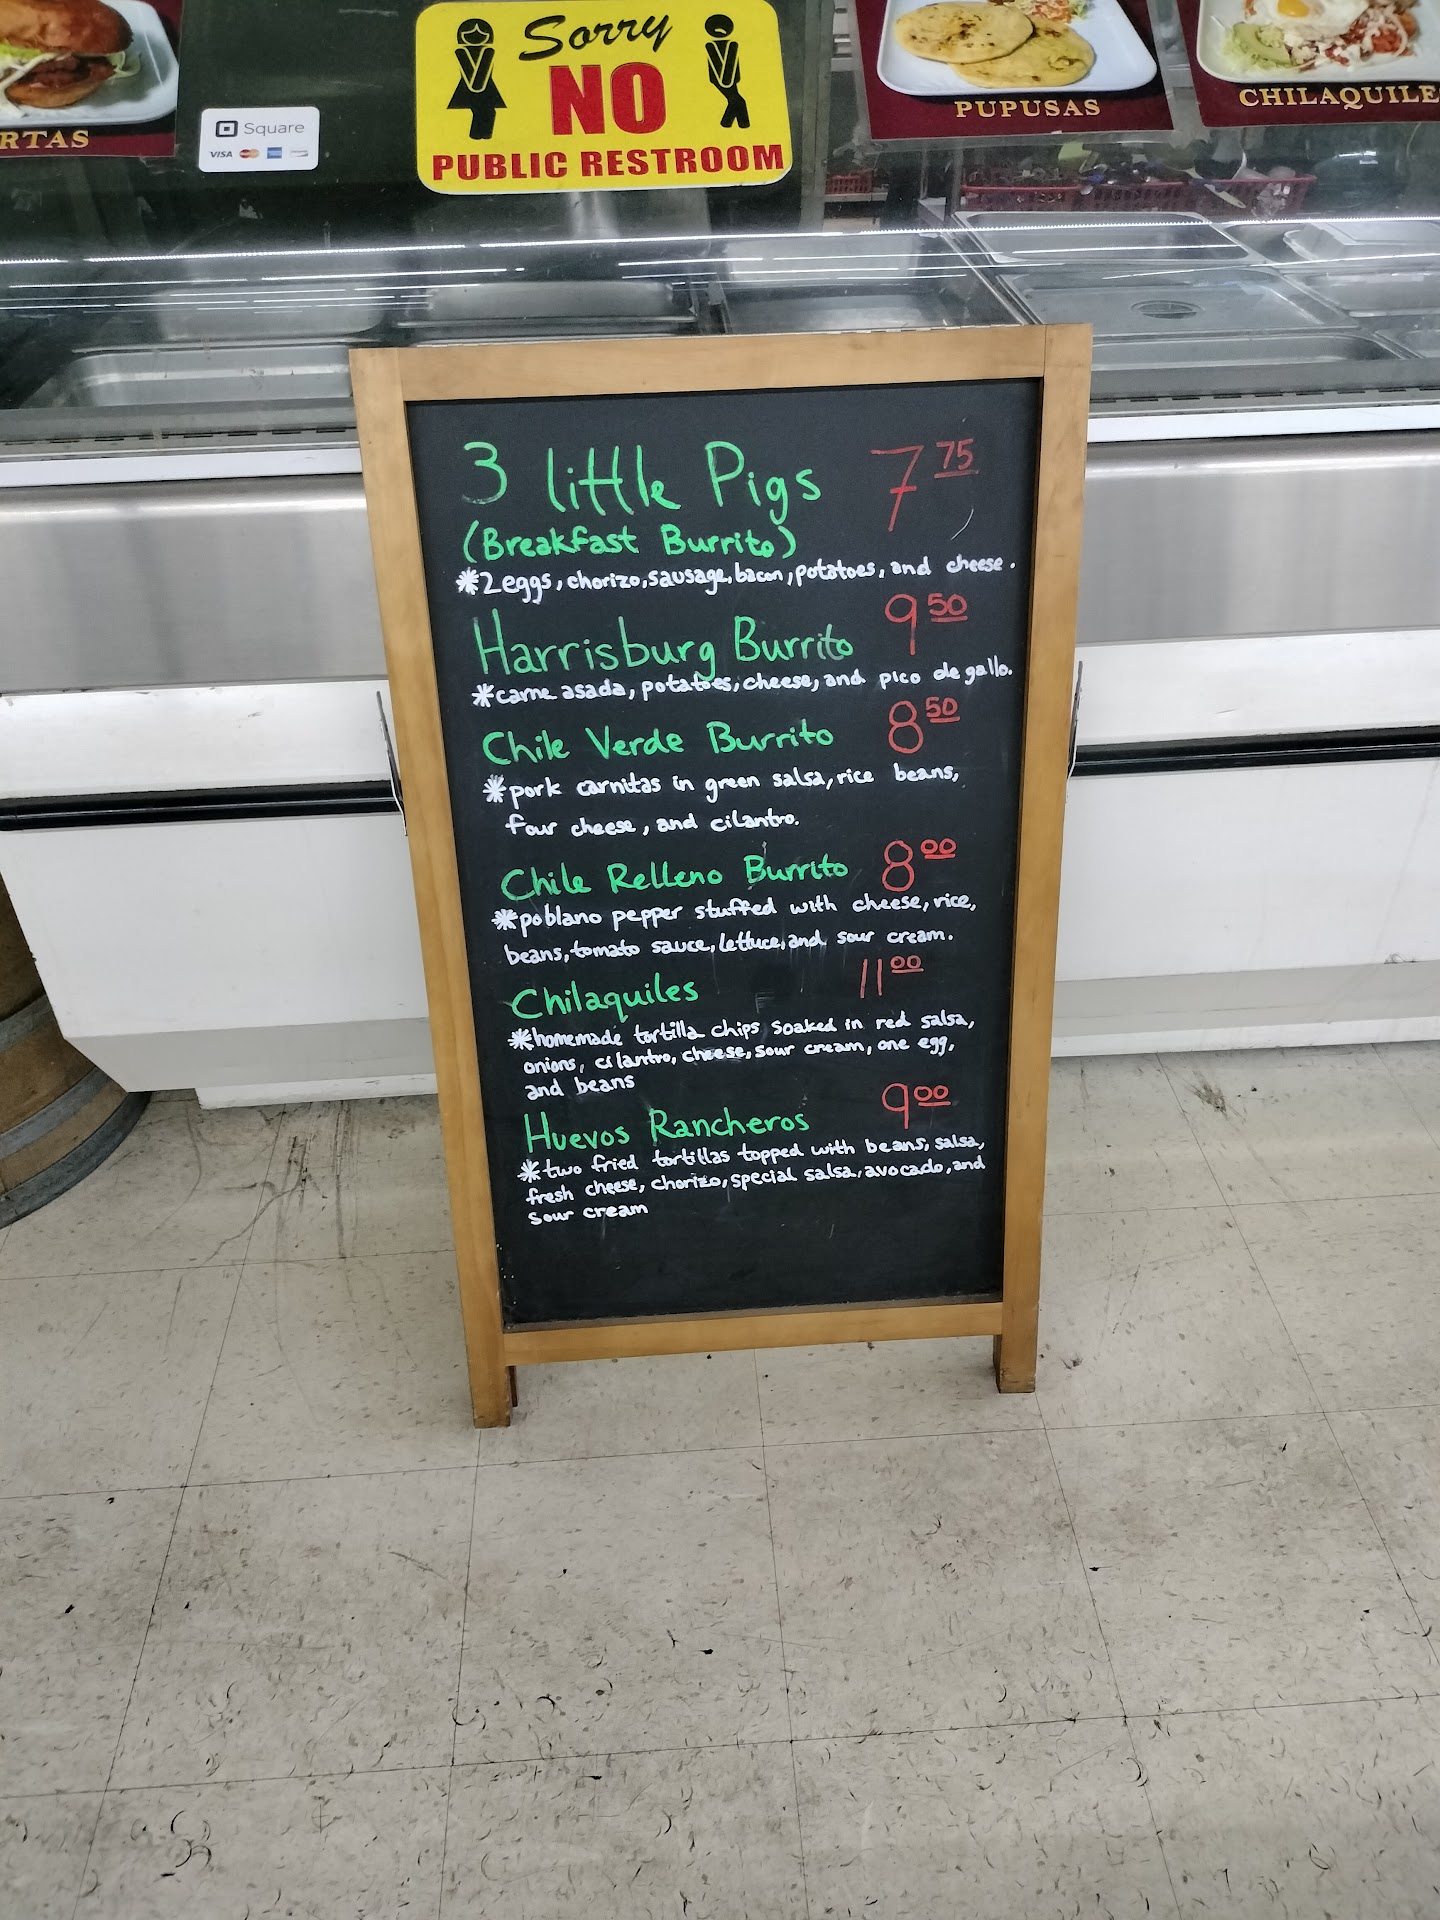 Sorry
NO
PUBLIC RESTROOM
RTAS
Square
VISA
PUPUSAS
CHILAQUILE
3 little Pigs 7 75
(Breakfast Burrito)
*2 eggs, chorizo, sausage, bacon, potatoes, and cheese.
Harrisburg Burrito 9 50
*carne asada, potatoes, cheese, and pico de gallo.
Chile Verde Burrito 8 50
*pork carnitas in green salsa, rice beans,
four cheese, and cilantro.
Chile Relleno Burrito 8 00
*poblano pepper stuffed with cheese, rice,
beans, tomato sauce, lettuce, and sour cream.
Chilaquiles 11 00
*homemade tortilla chips soaked in red salsa,
onions, cilantro, cheese, sour cream, one egg,
and beans
Huevos Rancheros 9 00
*two fried tortillas topped with beans, salsa,
fresh cheese, chorizo, special salsa, avocado, and
sour cream